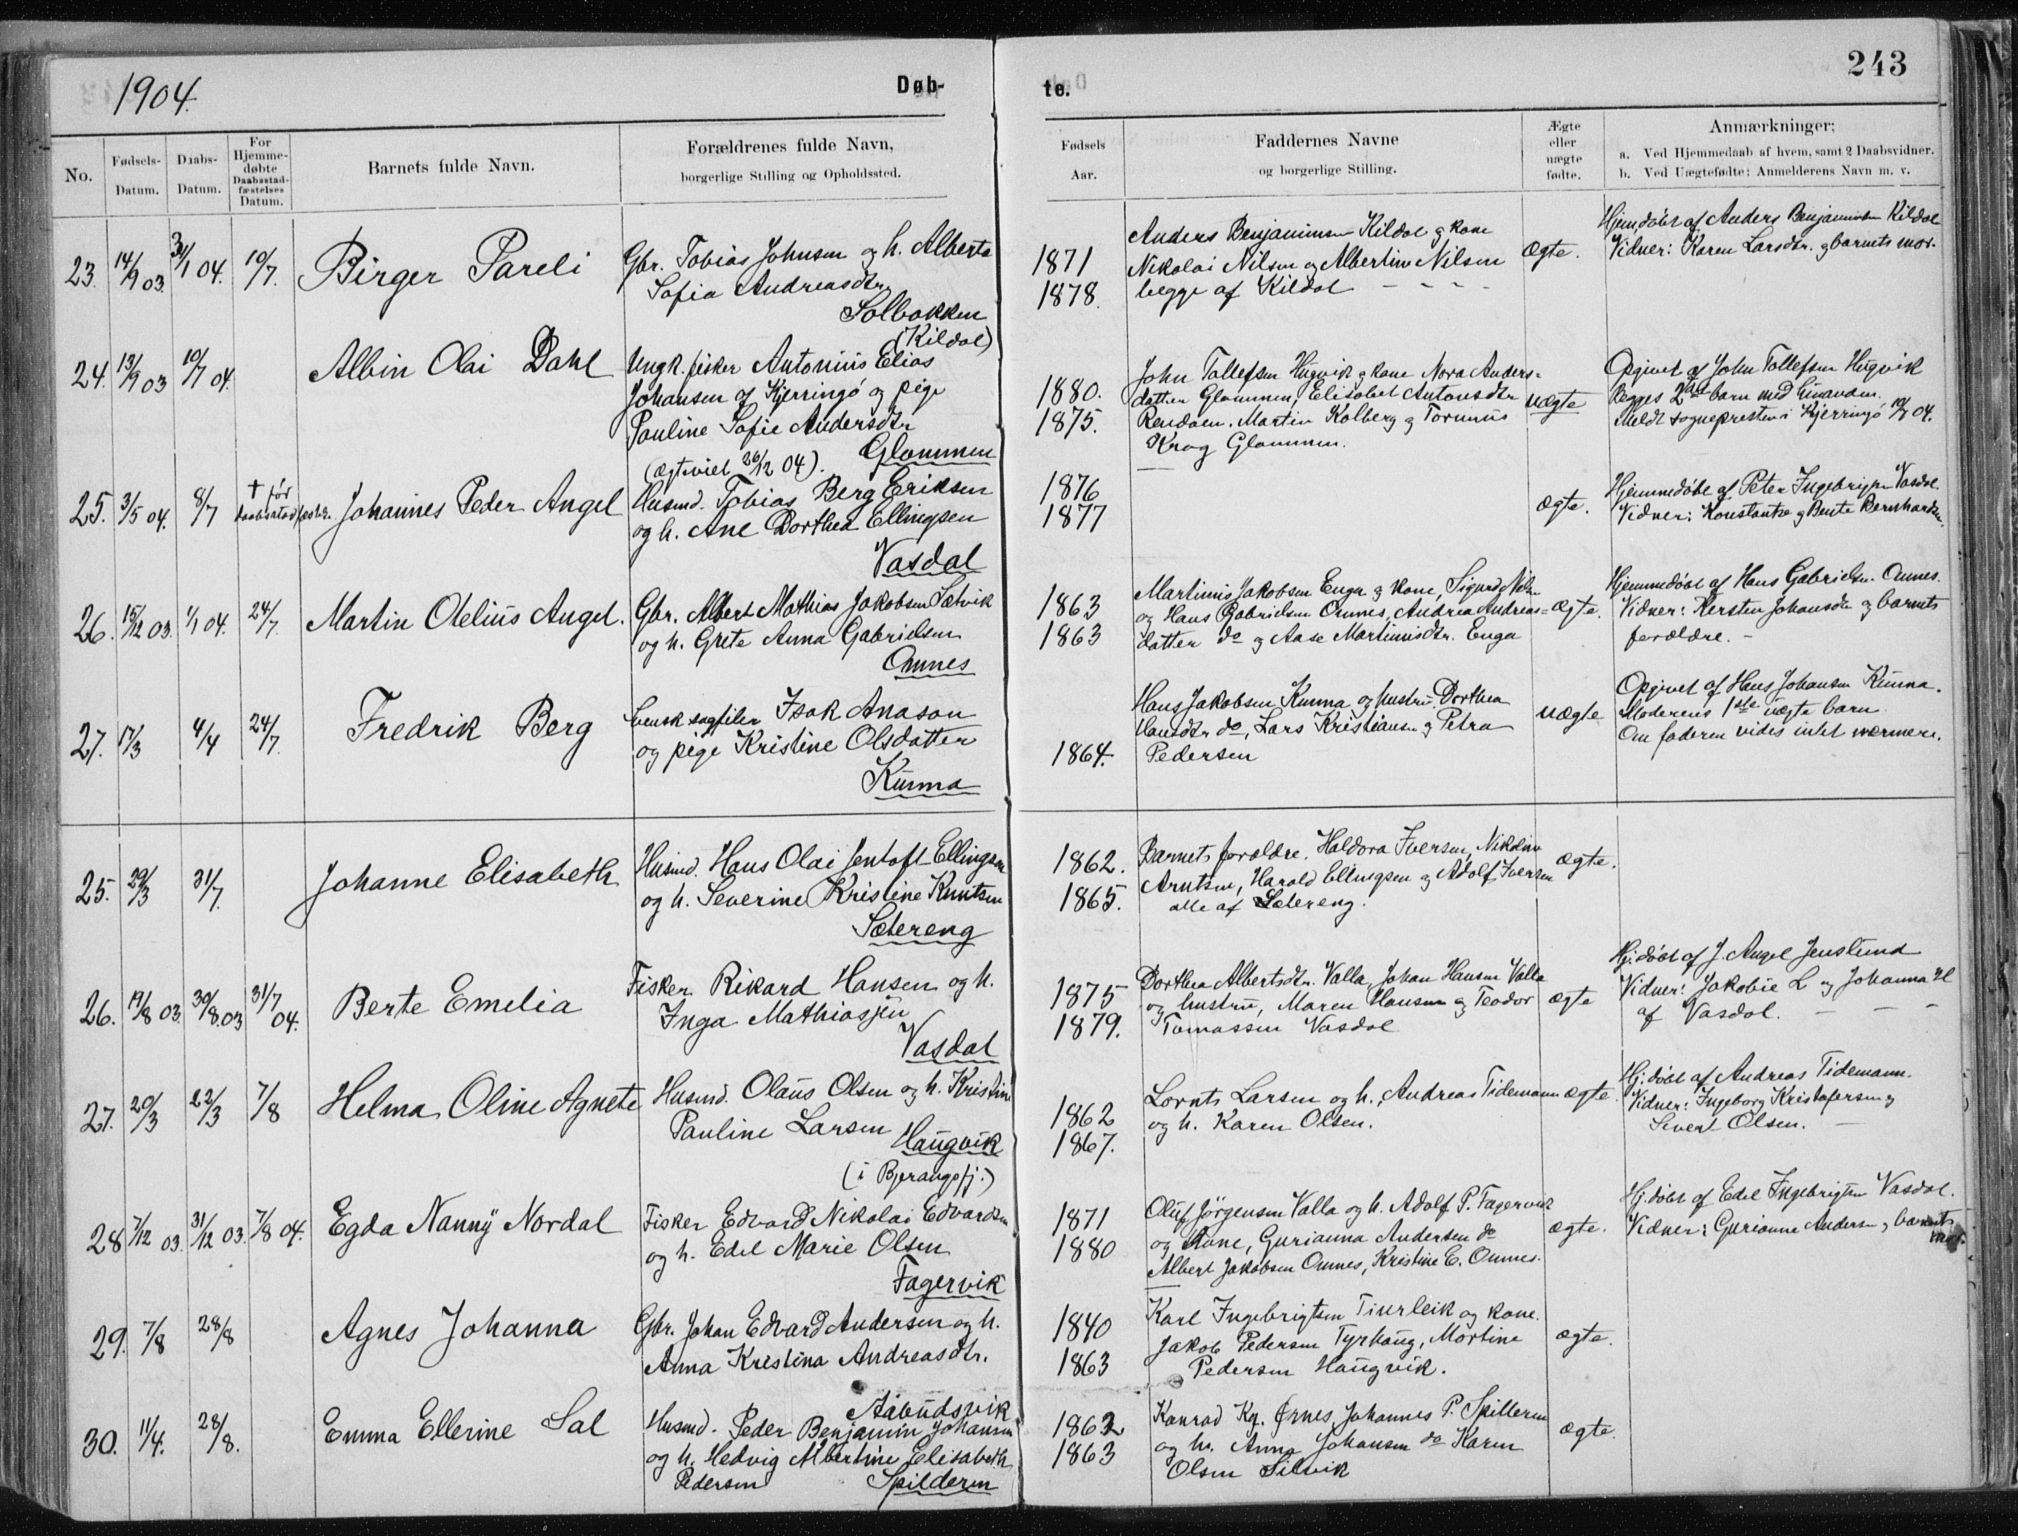 1904.
Døb-
te.
243
No.
Fødsels-
Datum.
Daabs-
Datum.
For
Hjemme-
døbte
Daabsstad-
fæstelses
Datum.
Barnets fulde Navn.
Forældrenes fulde Navn,
borgerlige Stilling og Opholdssted.
Fødsels
Aar.
Faddernes Navne
og borgerlige Stilling.
Ægte
eller
uægte
fødte.
Anmærkninger:
a. Ved Hjemmedaab af hvem, samt 2 Daabsvidner.
b. Ved Uægtefødte: Anmelderens Navn m. v.
23. 14/9 03. 31/1 04. 10/7. Birger Pareli
Gbr. Tobias Johnsen og h. Alberta
Sofia Andreasdtr
Solbakken
(Kildal)
1871
1878.
Anders Benjaminsen Kildal g kone
Nikolai Nilsen og Albertine Nilsen
begge af Kildal
ægte.
Hjemdöbt af Anders Benjaminsen Kildal
Vidner: Karen Larsdtr. g barnets mor.
24. 13/9 03 10/7 04. Albin Olai Dahl
Ungk. fisker Antonius Elias
Johansen af Kjerringö og pige
Pauline Sofie Andersdtr
Glommen
(ægteviet 26/12 04).
1880.
1875.
John Tollefsen Hugvik g kone Nora Anders=
datter Glommen, Elisabet Antonsdtr
Rendalen. Martin Kolberg g Torinus
Krog Glommen.
uægte
Opgivet af John Tollefsen Hugvik
Begges 2det barn med hinanden.
Meldt sognepresten i Kjerringö 10/7 04.
25. 3/5 04. 8/7 † før daabsstadfæstr. Johannes Peder Angel
Husmd. Tobias Berg Eriksen
og h. Ane Dorthea Ellingsen
Vasdal
1876
1877
ægte.
Hjemmedöbt af Peter Ingebrigtsn Vasdal.
Vidner: Konstantse g Bente Bernhardsn.
26. 15/12 03 1/1 04. 24/7. Martin Olelius Angel.
Gbr. Albert Mathias Jakobsen Sætvik
og h. Grete Anna Gabrielsen
Omnes
1863
1863
Martinus Jakobsen Engn g kone, Sigurd Nilsn
og Hans Gabrielsen Omnes, Andrea Andreas=
datter do g Aase Martinusdtr. Enga
ægte.
Hjemmedöbt af Hans Gabrielsn. Omnes.
Vidner: Kersten Johansdtr og barnets
forældre. –
27. 17/3 4/4 24/7. Fredrik Berg
Svensk sagfiler Isak Anason
og pige Kristine Olsdatter
Kunna
1864.
Hans Jakobsen Kunna og hustru Dorthea
Hansdtr do, Lars Kristiansn g Petra
Pedersen
uægte
Opgivet af Hans Johansen Kunna.
Moderens 1ste uægte barn.
Om faderen vides intet nærmere.
25. 29/3 31/7. Johanne Elisabeth
Husmd. Hans Olai Jentoft Ellingsen
og h. Severine Kristine Knutsen
Sætereng
1862.
1865.
Barnets forældre. Haldora Iversen, Nikoline
Arntsen, Harald Ellingsen og Adolf Iversen
alle af Sætereng.
ægte.
26. 19/8 03. 30/8 03 31/7 04. Berte Emelia
Fisker Rikard Hansen og h.
Inga Mathiasjen
Vasdal
1875
1879.
Dorthea Albertsdtr. Valla, Johan Hansen Valla
og hustru, Maren Hansen og Teodor
Tomassen Vasdal
ægte
Hj. döbt af J. Angel Jenslund
Vidner: Jakobie L og Johanna H
af Vasdal. – – –
27. 20/3 22/3 7/8 Helma Oline Agnete
Husmd. Olaus Olsen og h. Kristine
Pauline Larsen
Haugvik
(i Bjerangsfj.)
1862
1867.
Lornts Larsen og h., Andreas Tidemann
og h. Karen Olsen.
ægte.
Hj. döbt af Andreas Tidemann.
Vidner: Ingeborg Kristofersen g
Sivert Olsen. –
28 7/12 03. 31/12 03. 7/8 04. Egda Nanny Nordal
Fisker Edvard Nikolai Edvardsen
og h. Edel Marie Olsen
Fagervik
1871
1880
Oluf Jörgensen Valla og h. Adolf P. Fagervik
og kone, Gurianna Andersen do
Albert Jakobsen Omnes, Kristine E. Omnes.
ægte.
Hj. döbt af Edel Ingebrigtsen Vasdal.
Vidner: Gurianne Andersn g barnets
mor.
29. 7/8 28/8 Agnes Johanna
Gbr. Johan Edvard Andersen og h.
Anna Kristina Andreasdtr.
Aabudsvik
1840
1863
Karl Ingebrigtsen Tinrleik og kone.
Jakob Pedersen Tyrhaug, Mortine
Pedersen Haugvik.
ægte.
30. 11/4. 28/8. Emma Ellerine Sal
Husmd. Peder Benjamin Johansen
og h. Hedvig Albertine Elisabeth
Pedersen Spilderen
1862
1863
Konrad Kg. Ørnes Johannes P. Spilleren
og h. Anna Johansen do Karen
Olsen Silvik
ægte.